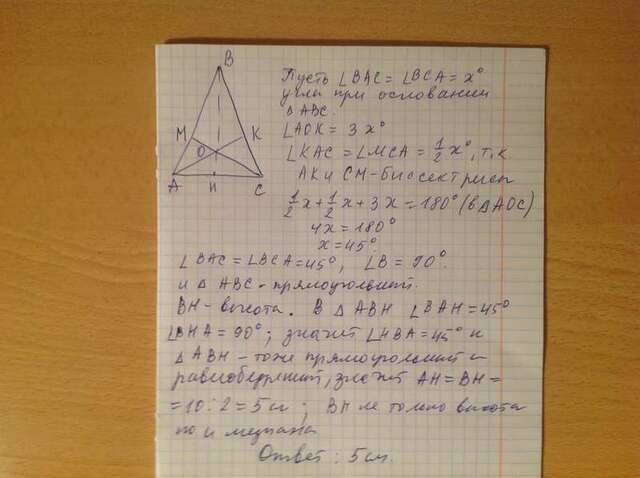 Пусть ∠BAC = ∠BCA = x°
углы при основании
△ABC.
∠AOK = 3x°
∠KAC = ∠MCA = 1/2 x°, т.к
AK и CM - биссектрисы
1/2 x + 1/2 x + 3x = 180° (в △AOC)
4x = 180°
x = 45°.
∠BAC = ∠BCA = 45°, ∠B = 90°.
и △ABC - прямоугольный.
BH - высота. В △ABH ∠BAH = 45°
∠BHA = 90°, значит ∠HBA = 45° и
△ABH - тоже прямоугольный и
равнобедренный, значит AH = BH =
= 10 : 2 = 5 см. BH не только высота
но и медиана
Ответ: 5 см.
B
K
M
O
C
H
A